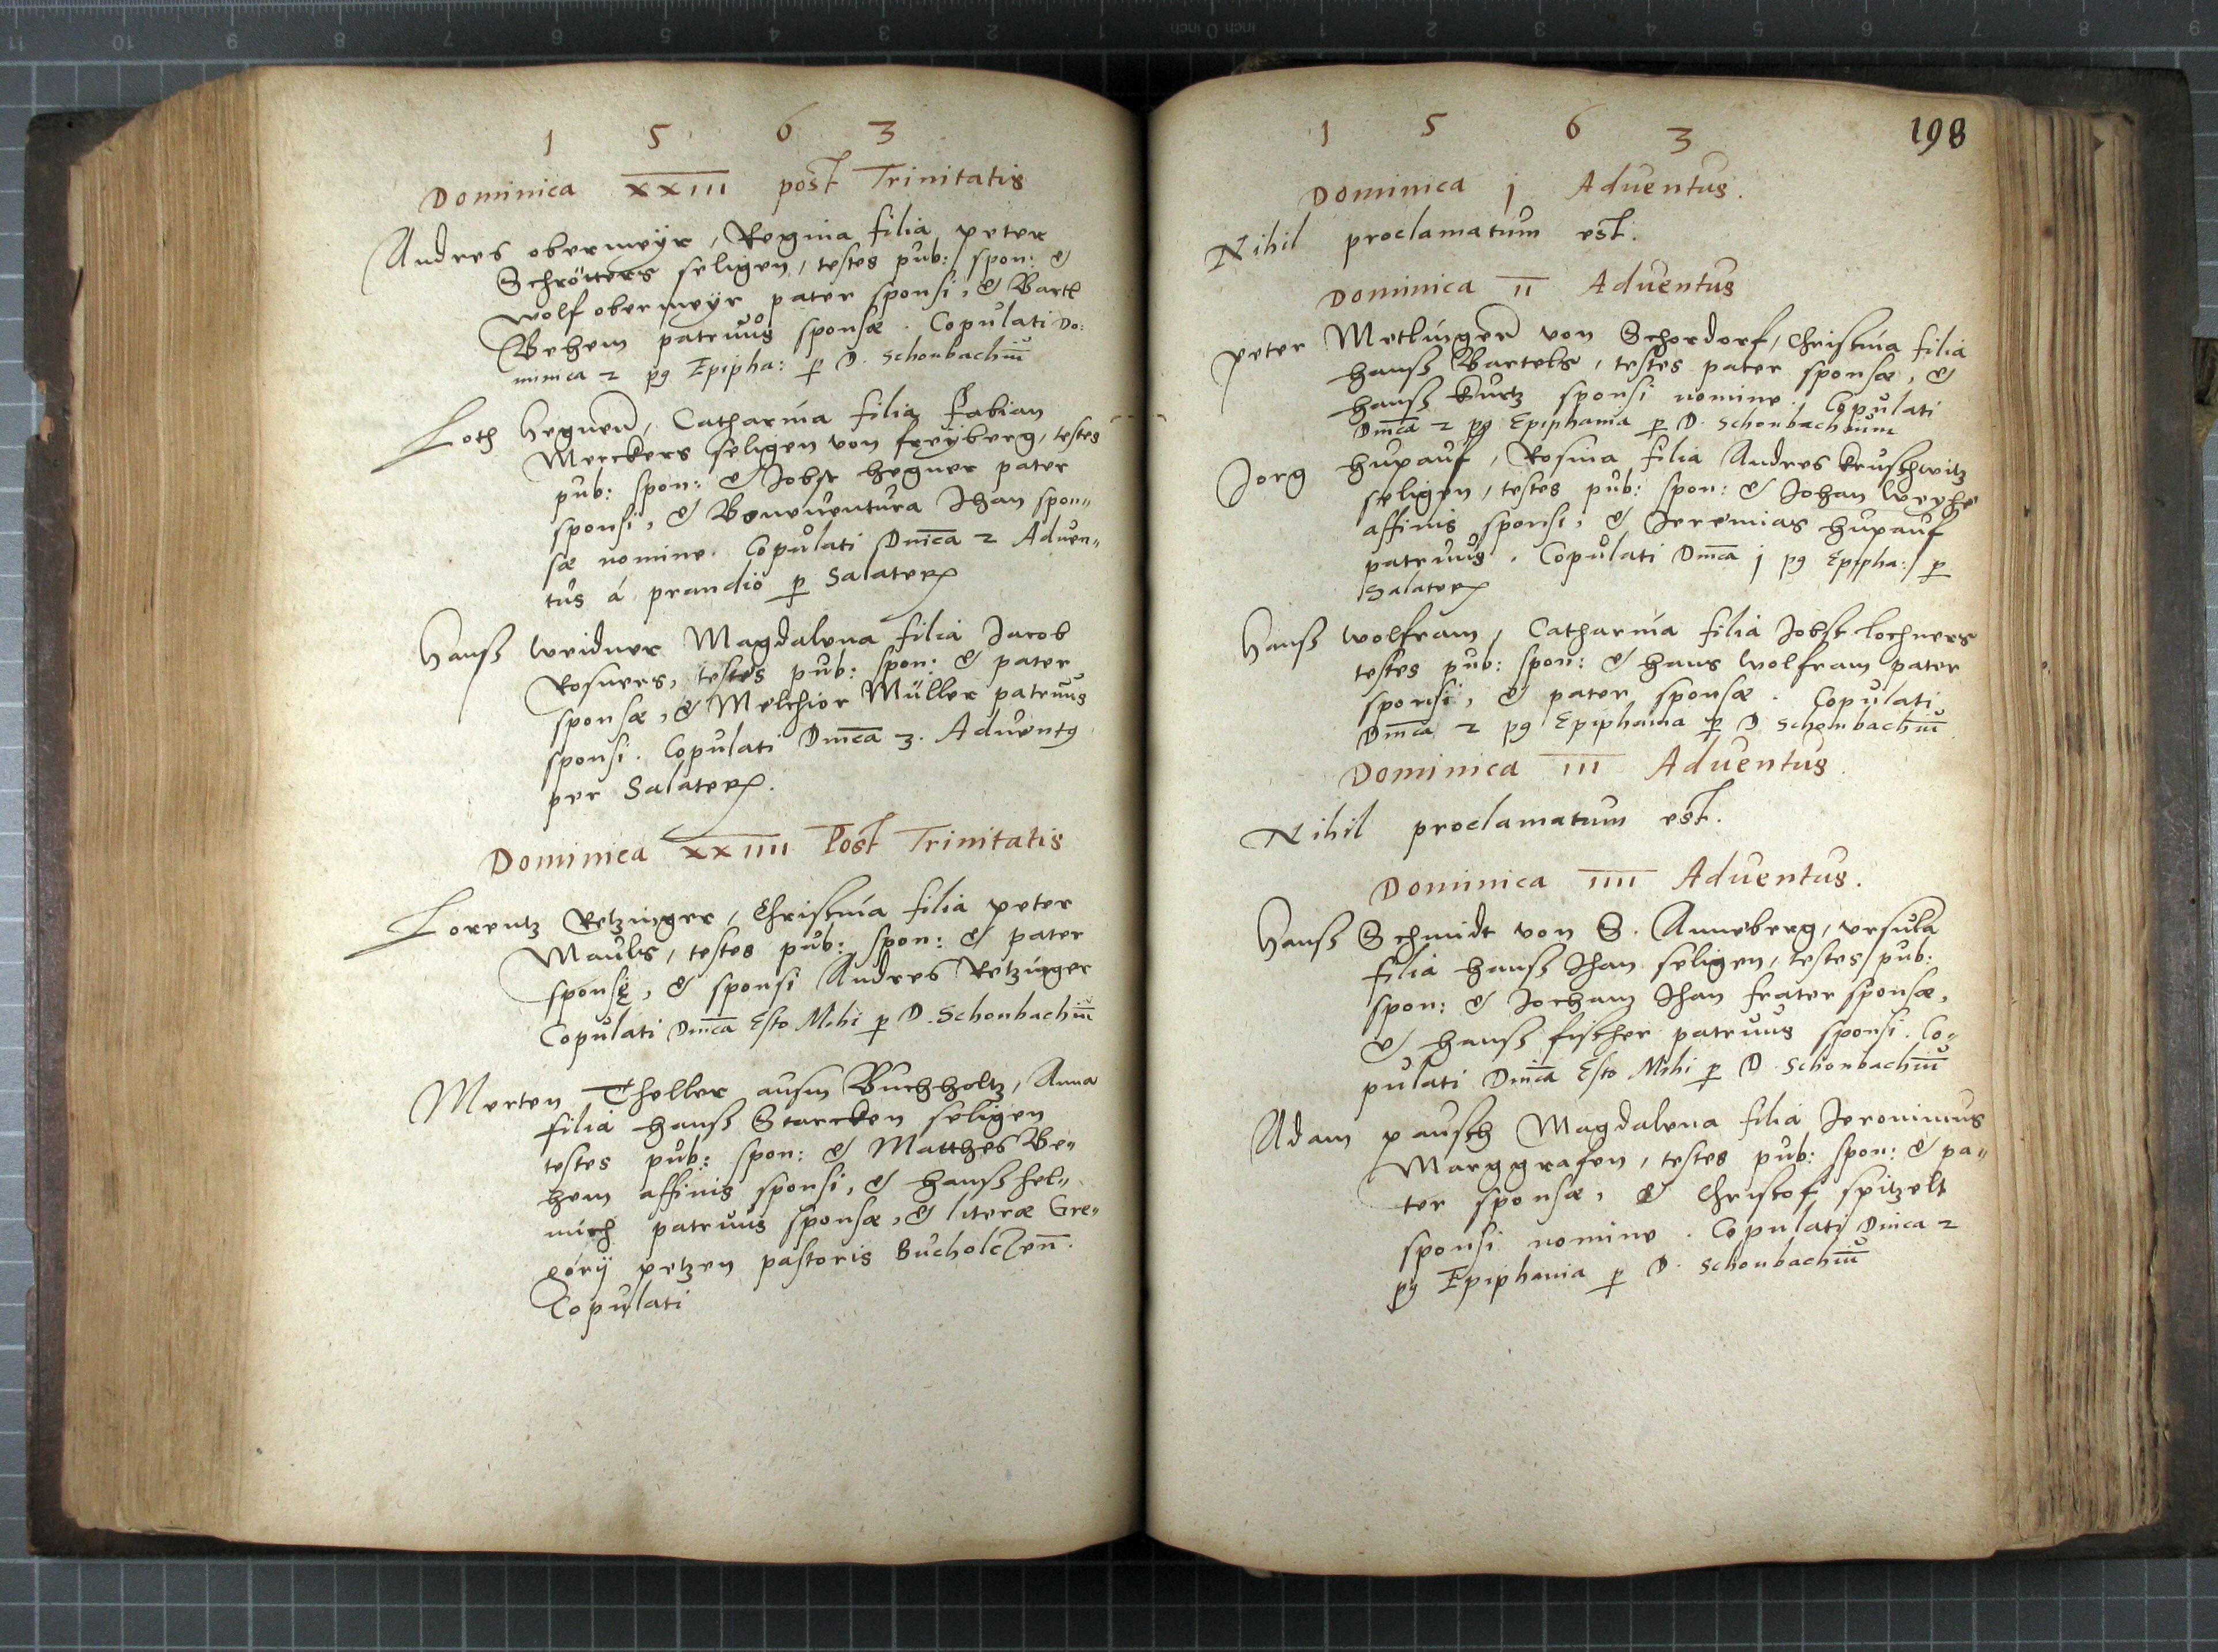 1 5 6 3
Dominica XXIII post Trinitatis
Andres obermeyr, Regina filia peter
Schrötters seligen, testes pub: spon: &
Wolf obermeyr pater sponsi, & Bartl
Behem patruus sponsæ. Copulati Do:
minica 2 pg Epipha: p D. Schonbachiū
Loth Hegner, Catharina filia Fabian
Merckers seligen von freyberg, testes
pub: spon: & Jobst Hegner pater
sponsi, & Boneuentura Jhan spon„
sæ nomine. Copulati Dnica 2 Aduen„
tus á prandio p Salater
Hanß Weidner Magdalena filia Jacob
Rosners, testes pub: spon: & pater
sponsæ, & Melchior Müller patruus
sponsi. Copulati Dnica 3. Aduentg
per Salater.
Dominica XXIIII Post Trinitatis
Lorentz Retzinger, Christina filia peter
Mauls, testes pub: spon: & pater
sponsę, & sponsi Andres Retzinger
Copulati Dnica Esto Mihi p D. Schonbachiū
Merten Theller ausm Buchholtz, Anna
filia Hanß Starcken seligen
testes pub: spon: & Matthes Be„
hem affinis sponsi, & Hanß Hel„
mich patruus sponsæ, & literæ Gre„
gorij petzen pastoris Bucholczen.
Copulati
1 5 6 3
198
Dominica j Aduentus.
Nihil proclamatum est.
Dominica II Aduentus
peter Metlinger von Schordorf, Christina filia
Hanß Bartels, testes pater sponsæ, &
Hanß Kurtz sponsi nomine. Copulati
Dnica 2 pg Epiphania p D. Schonbachium
Jorg Hupauf, Rosina filia Andres Kruschwitz
seligen, testes pub: spon: & Johan Weyhe
affinis sponsi, & Jeremias Hupauf
patruus. Copulati Dnica j pg Epipha: p
Salater
Hanß Wolfram, Catharina filia Jobst Lochners
testes pub: spon: & Hans Wolfram pater
sponsi, & pater sponsæ. Copulati
Dnica 2 pg Epiphania p D Schonbachiū
Dominica III Aduentus.
Nihil proclamatum est.
Dominica IIII Aduentus.
Hanß Schmidt von S. Anneberg, Vrsula
filia Hanß Jhan seligen, testes pub:
spon: & Jochanz Jhan frater sponsæ,
& Hanß fischer patruus sponsi. Co„
pulati Dnica Esto Mihi p D Schonbachiū
Adam pausch Magdalena filia Jeronimus
Marggrafen, testes pub: spon: & pa„
ter sponsæ, & Christof spitzelt
sponsi nomine. Copulati Dnica 2
pg Epiphania p D. Schonbachiū